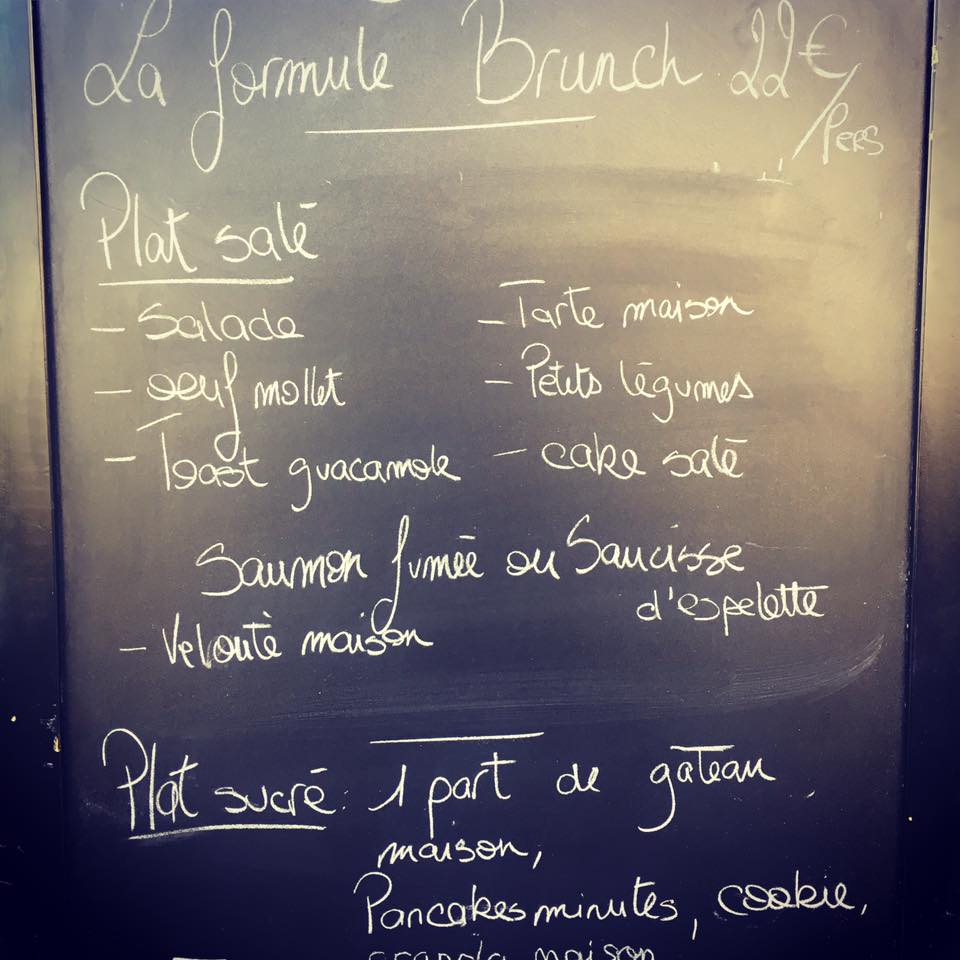 La formule Brunch 22€/Pers
Plat salé
- Salade
- Tarte maison
- oeuf mollet
- Petits légumes
- Toast guacamole
- cake salé
Saumon fumée ou Saucisse
d'espelette
- Velouté maison
Plat sucré: 1 part de gateau
maison,
Pancakes minutes, cookie,
granola maison